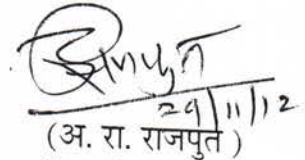 29/11/12
(अ. रा. राजपुत)